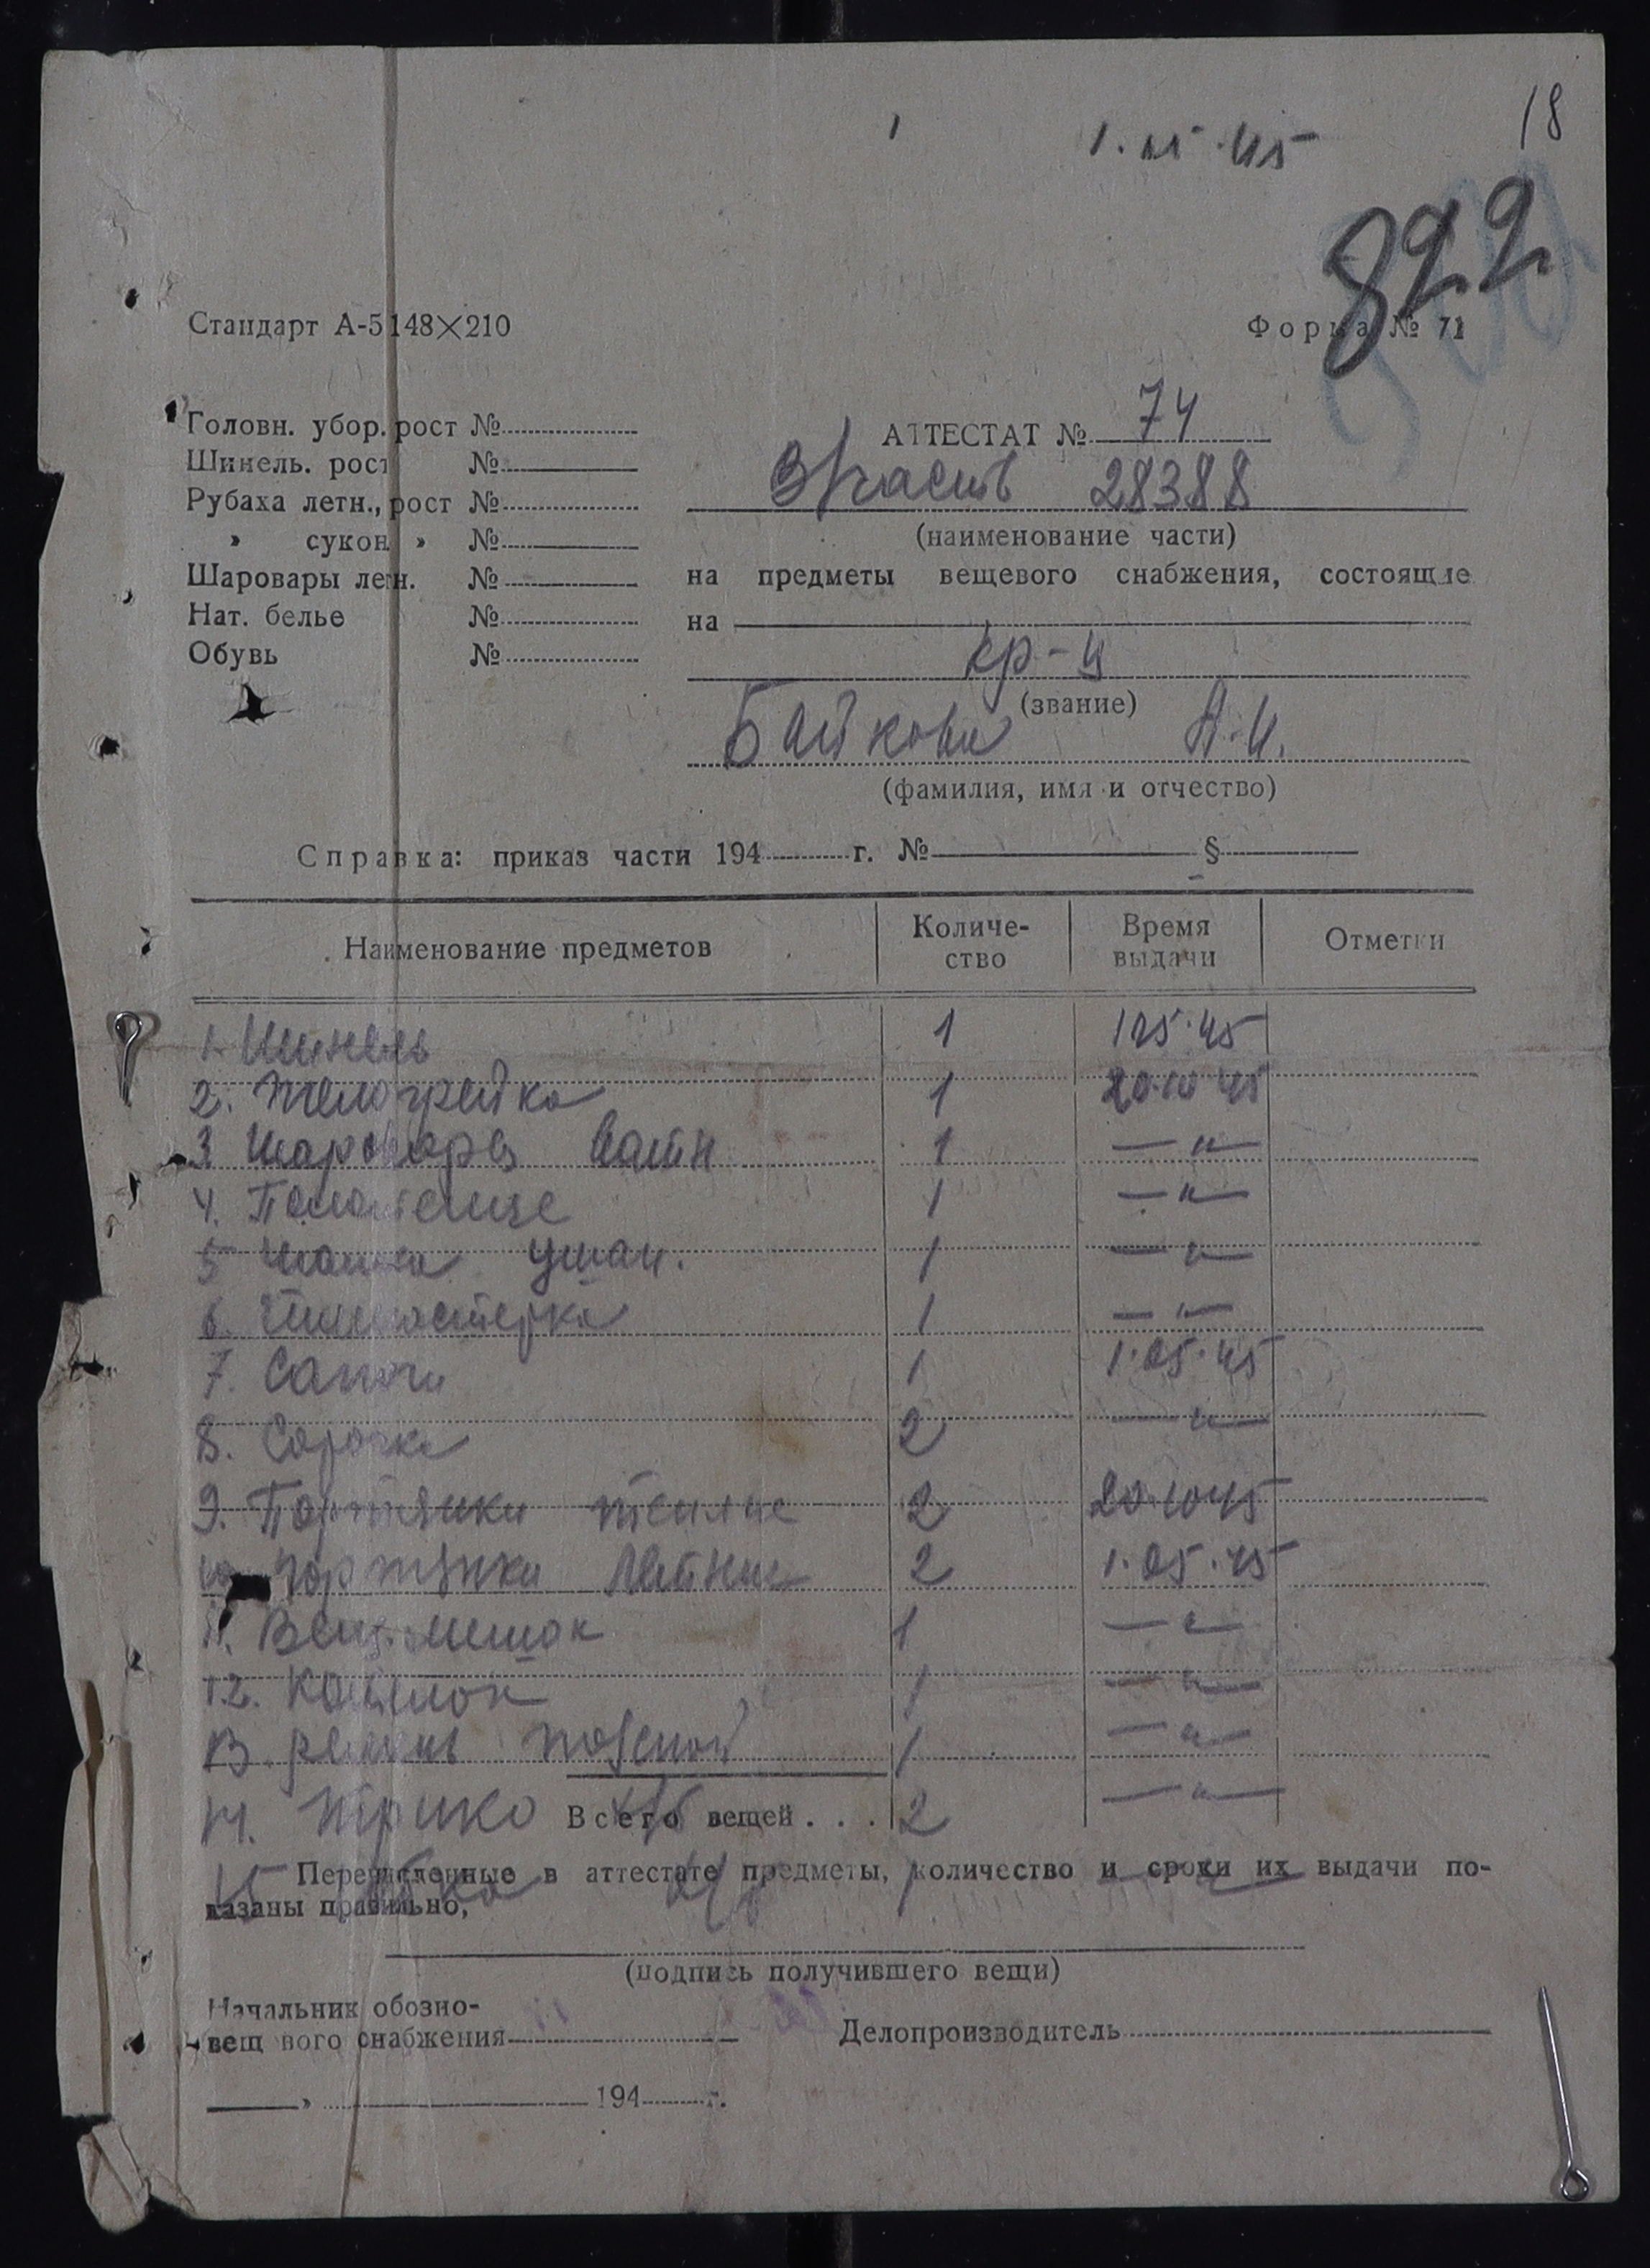 18
1.05.45
822
Стандарт А-5 148×210
Форма № 71
Головн. убор. рост №
Шинель. рост №
Рубаха летн., рост №
» сукон. » №
Шаровары летн. №
Нат. белье №
Обувь №
АТТЕСТАТ № 74
В/часть 28388
(наименование части)
на предметы вещевого снабжения, состоящие
на
кр-ц
(звание)
Байкова А.И.
(фамилия, имя и отчество)
Справка: приказ части 194 г. № §
Наименование предметов Количество Время выдачи Отметки
1. Шинель 1 1 05.45
2. Телогрейка 1 20.10 45
3 Шаровары ватн 1 — " —
4. Полотенце 1 — " —
5 Шапка ушан. 1 — " —
6. Гимнастерка 1 — " —
7. Сапоги 1 1.05.45
8. Сорочка 2 — " —
9. Портянки теплые 2 20.10 45
10 Портянки летние 2 1.05.45
11. Вещ. мешок 1 — " —
12. Котелок 1 — " —
13. ремень поясной 1 — " —
14. Трико х/б 2 — " —
Всего вещей . . .
15 Юбка х/б 1 — " —
Перечисленные в аттестате предметы, количество и сроки их выдачи по-
казаны правильно,
(подпись получившего вещи)
Начальник обозно-
вещевого снабжения
Делопроизводитель
» 194 г.